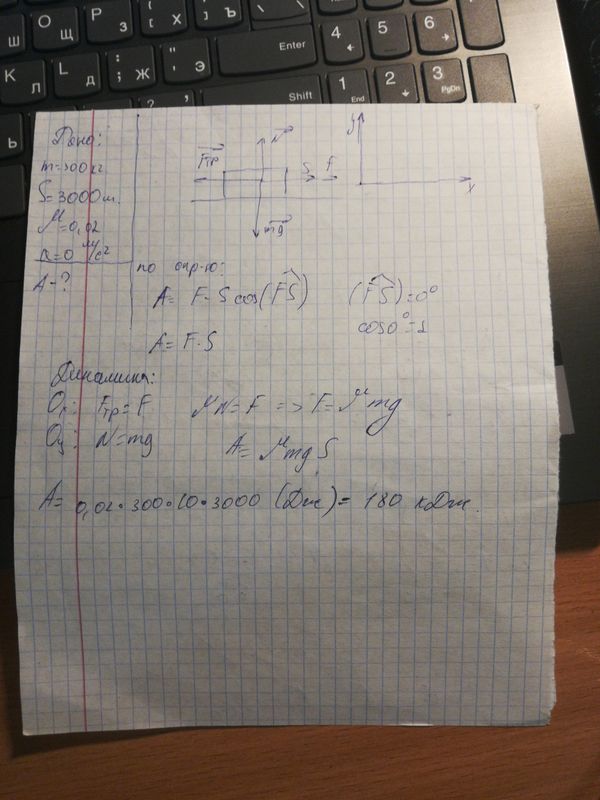 Ш
Щ
О
З
Р
Х
Ъ
Enter
4
5
6
К
Л
L
Д
: ;
Ж
" '
Э
Shift
1
End
2
3
PgDn
Ь
?
Дано:
m=300кг
S=3000м.
μ=0,02
a=0 м/с²
A-?
N
Fтр
S
F
mg
y
x
по опр-ю:
A= F·S cos(FS)
(FS)=0°
cos0°=1
A=F·S
Динамика:
Ox: Fтр=F
μN=F => F=μmg
Oy: N=mg
A= μmg S
A= 0,02·300·10·3000 (Дж)= 180 кДж.